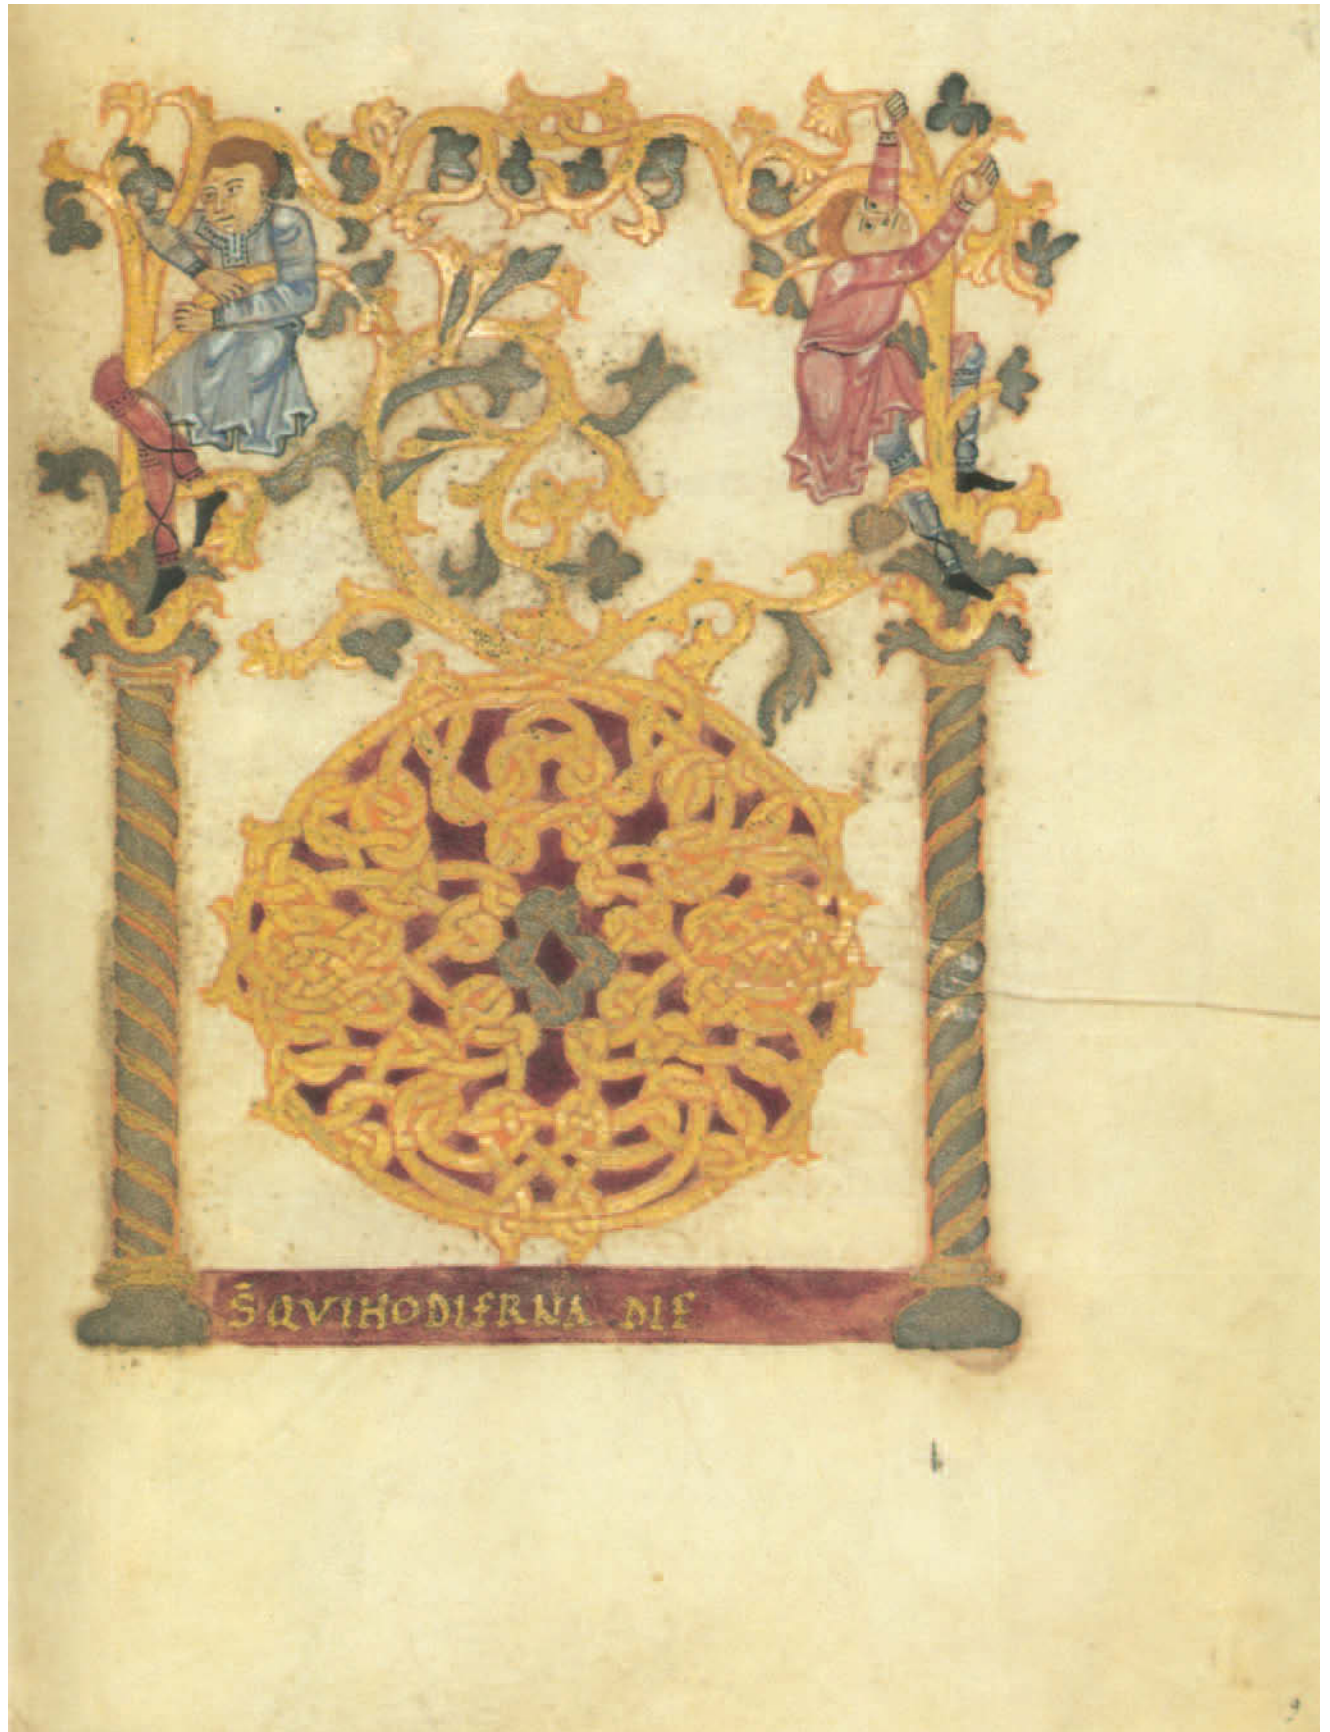 S̄ QVIHODIERNA DIE
9